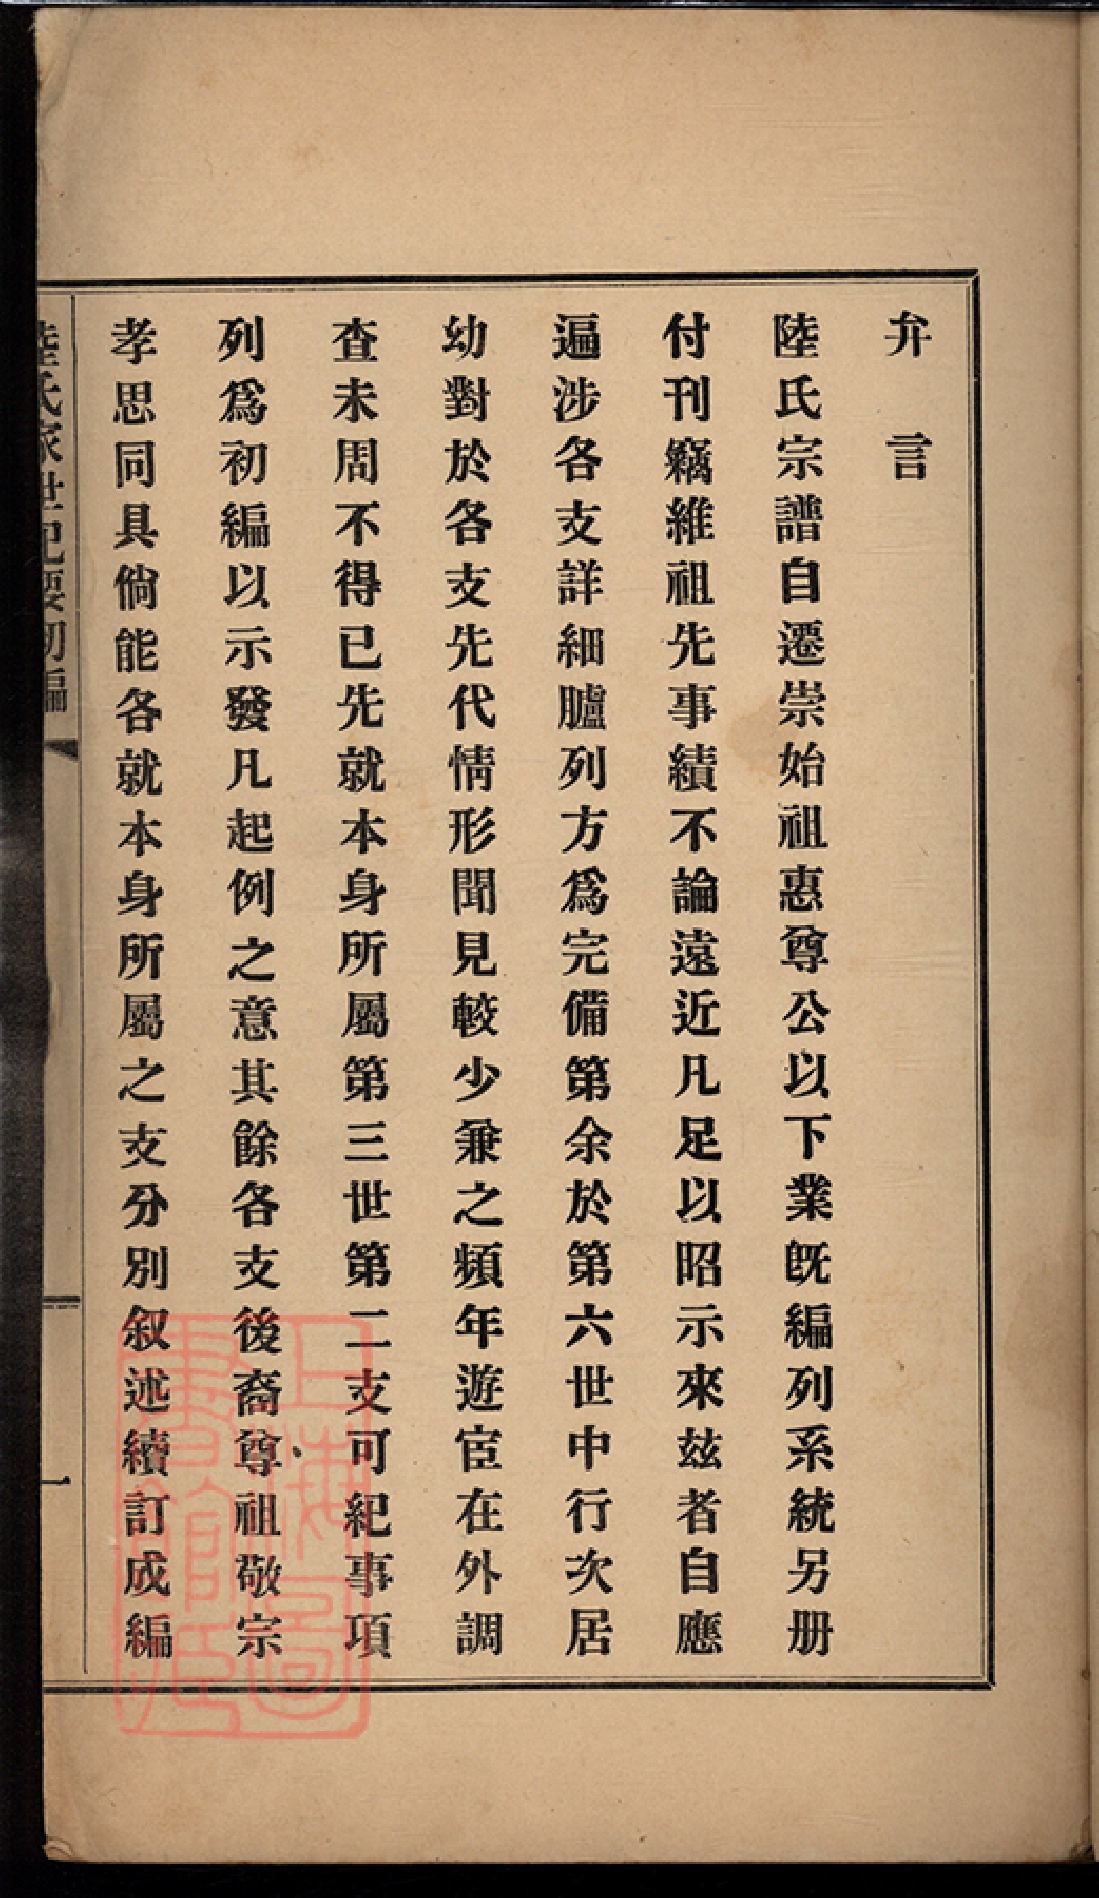 弁言
陸氏宗譜自遷崇始祖惠尊公以下業旣編列系統另册
付刊竊維祖先事績不論遠近凡足以昭示來玆者自應
遍涉各支詳細臚列方爲完備第余於第六世中行次居
幼對於各支先代情形聞見較少兼之頻年遊宦在外調
查未周不得已先就本身所屬第三世第二支可紀事項
列爲初編以示發凡起例之意其餘各支後裔尊祖敬宗
孝思同具倘能各就本身所屬之支分別叙述續訂成編
陸氏家世紀要初編
一
上海圖書館藏